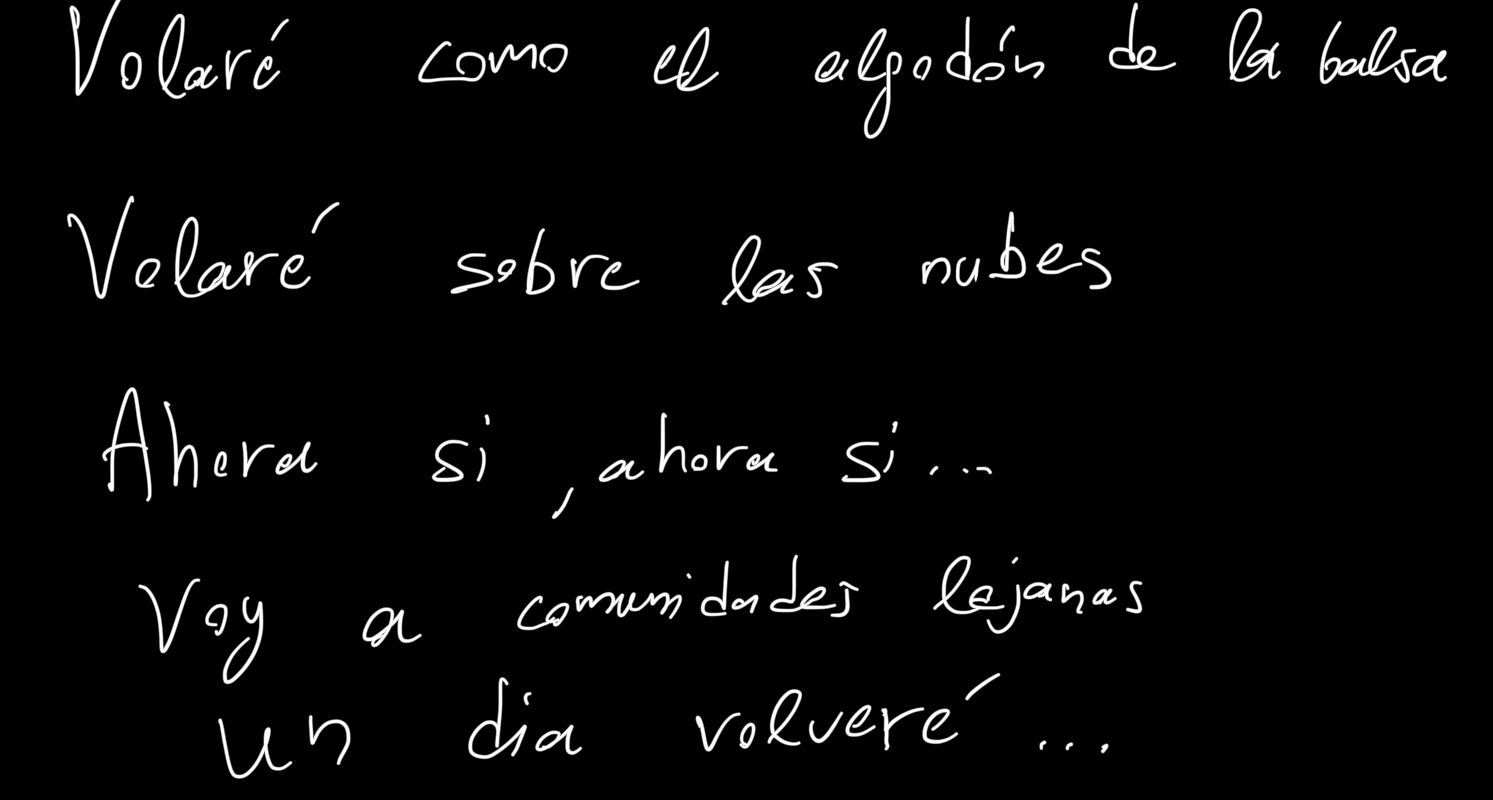 Volaré como el algodón de la balsa
Volaré sobre las nubes
Ahora si, ahora si...
Voy a comunidades lejanas
un dia volveré...